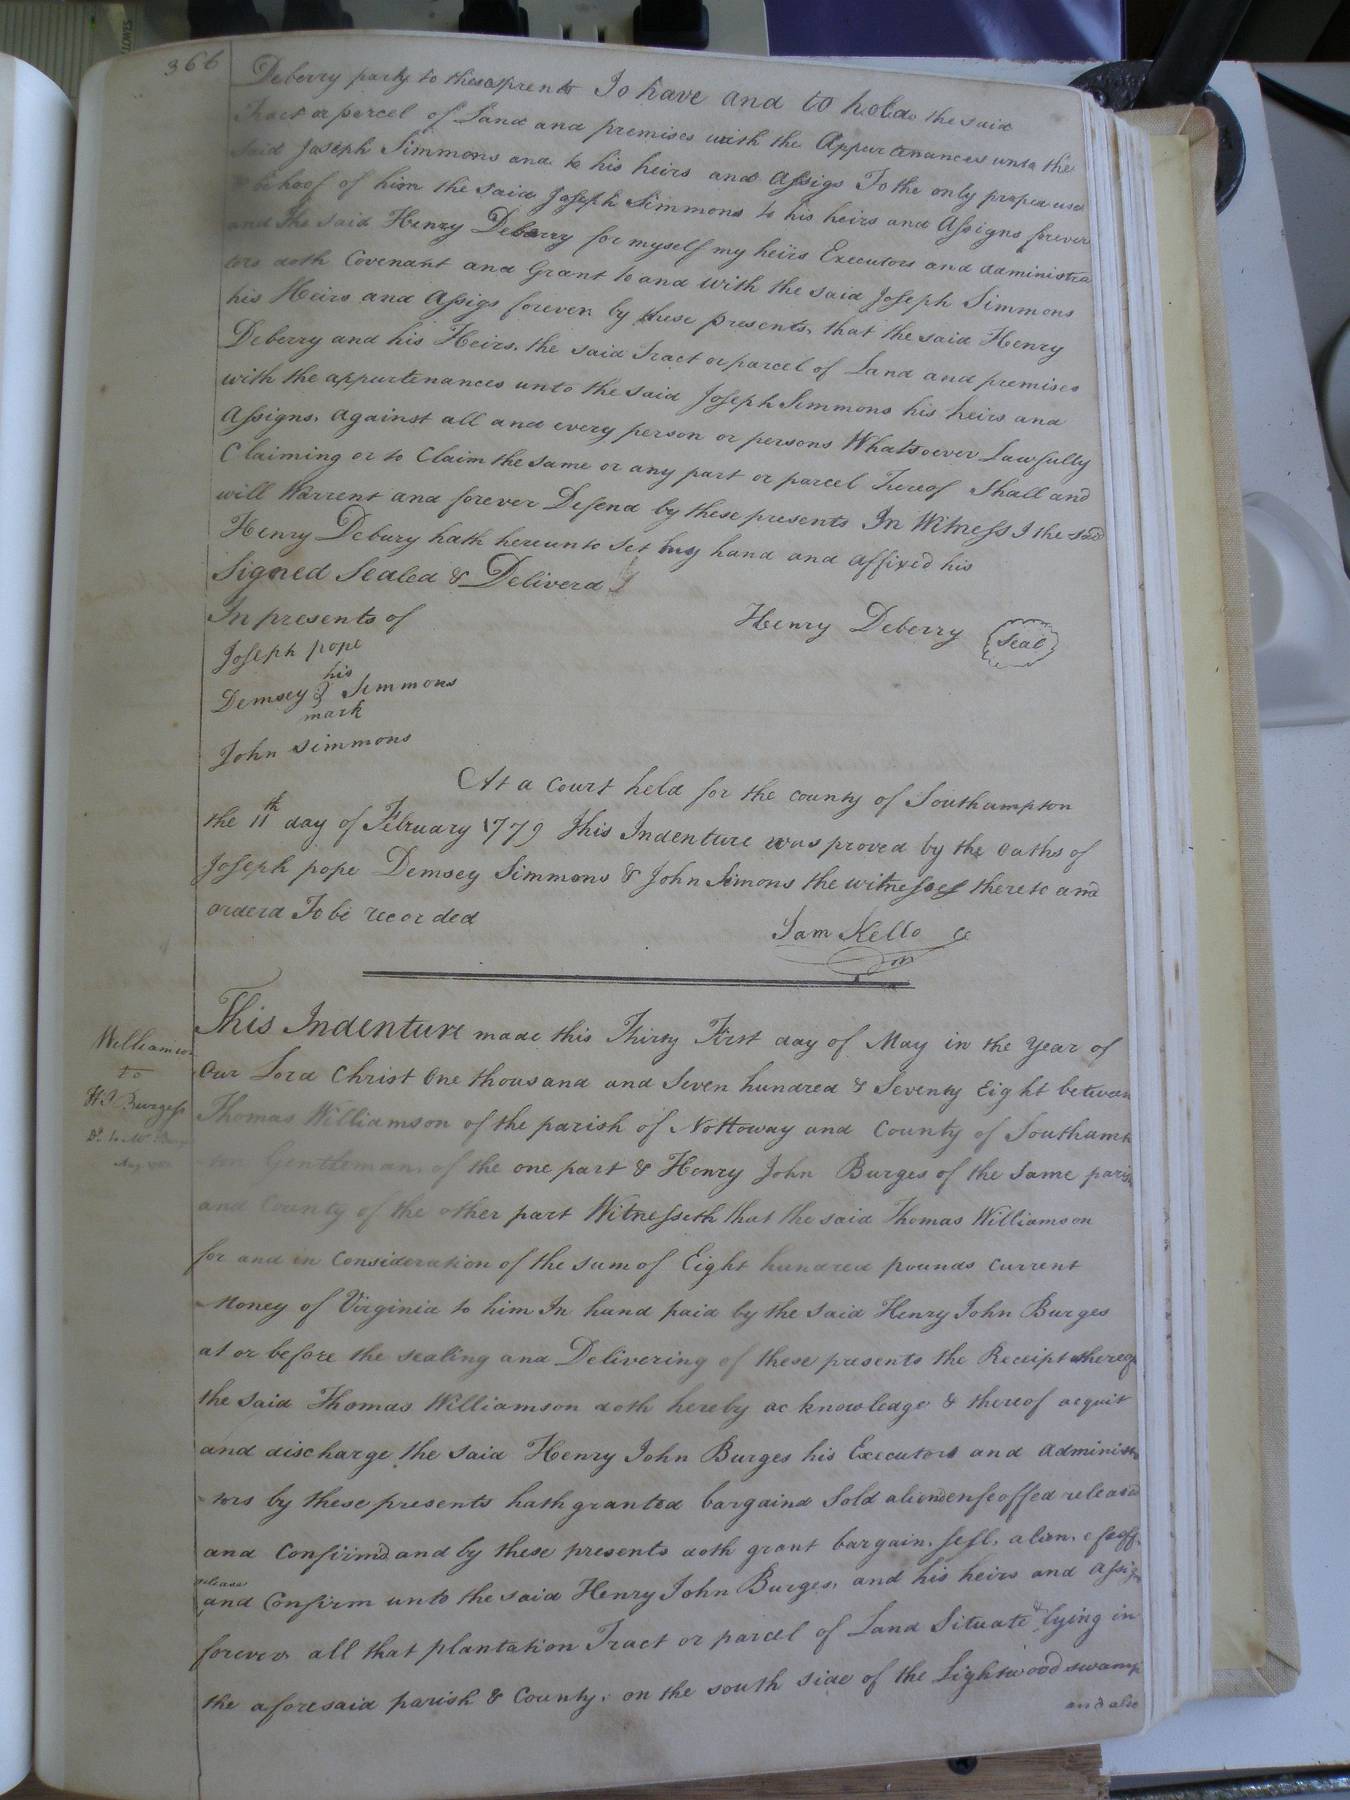 366
Deberry party to these prents To have and to hold the said
Tract or parcel of Land and premises with the Appurtenances unto the
said Joseph Simmons and to his heirs and Assigs To the only proper use
& behoof of him the said Joseph Simmons to his heirs and Assigns forever
and the said Henry Deberry for myself my heirs Executors and administra
tors doth Covenant and Grant to and with the said Joseph Simmons
his Heirs and Assigs forever by these presents, that the said Henry
Deberry and his Heirs, the said Tract or parcel of Land and premises
with the appurtenances unto the said Joseph Simmons his heirs and
Assigns, against all and every person or persons Whatsoever Lawfully
Claiming or to Claim the same or any part or parcel Thereof Shall and
will Warrent and forever Defend by these presents In Witness I the said
Henry Debury hath hereunto set my hand and affixed his
Signed Sealed & Deliverd
In presents of
Henry Deberry Seal
Joseph pope
his
Demsey Simmons
mark
John Simmons
At a Court held for the county of Southampton
the 11th day of February 1779 This Indenture was proved by the oaths of
Joseph pope Demsey Simmons & John Simons the witnesses thereto and
orderd To be recorded
Sam Kello
This Indenture made this Thirty First day of May in the Year of
Our Lord Christ One thousand and Seven hundred & Seventy Eight between
Williamson
to
H J Burgess
Thomas Williamson of the parish of Nottoway and County of Southamp
-ton Gentleman of the one part & Henry John Burges of the same parish
and County of the other part Witnesseth that the said Thomas Williamson
for and in Consideration of the sum of Eight hundred pounds current
Money of Virginia to him In hand paid by the said Henry John Burges
at or before the sealing and Delivering of these presents the Receipt whereof
the said Thomas Williamson doth hereby acknowledge & thereof acquit
and discharge the said Henry John Burges his Executors and Administra
-tors by these presents hath granted bargaind Sold aliend enfeoffed released
and Confirm'd and by these presents doth grant bargain, sell, alien, efeoff,
release
and Confirm unto the said Henry John Burges, and his heirs and Assigs
forever all that plantation Tract or parcel of Land Situate & lying in
the aforesaid parish & County, on the south side of the Lightwood swamp
and also